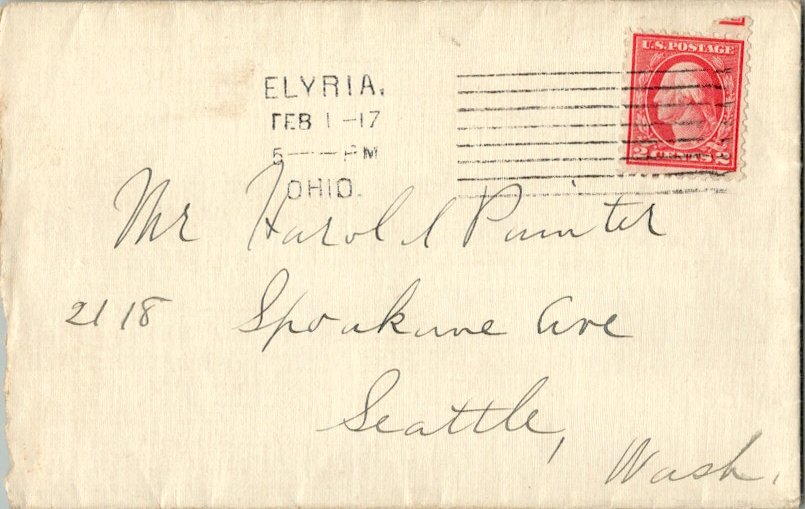 U.S. POSTAGE
2 CENTS 2
ELYRIA.
FEB 1-17
5--- PM
OHIO.
Mr Harold Painter
2118 Spoakane Ave
Seattle,
Wash.